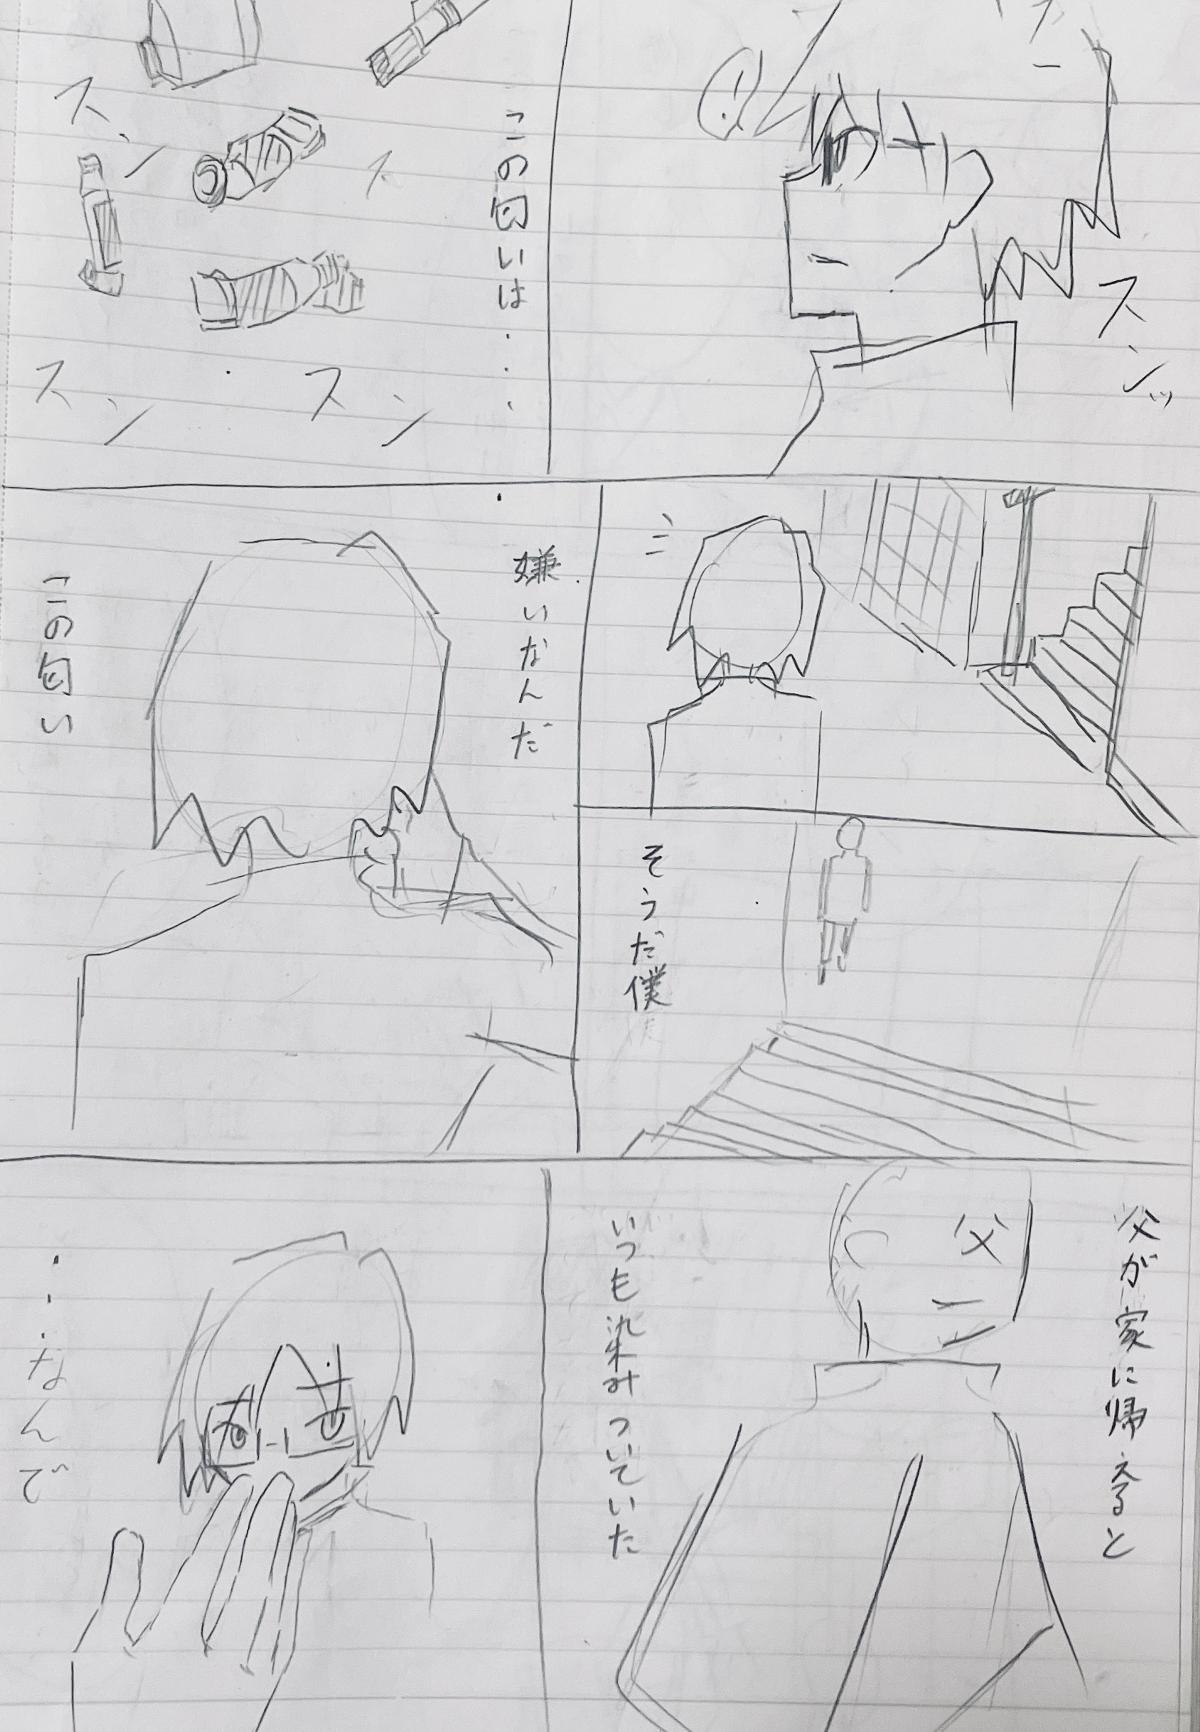 スンッ
この匂いは・・・・
スン
ス
スン
スン
そうだ僕
嫌いなんだ
この匂い
父が家に帰えると
父
いつも染みついていた
・・・なんで